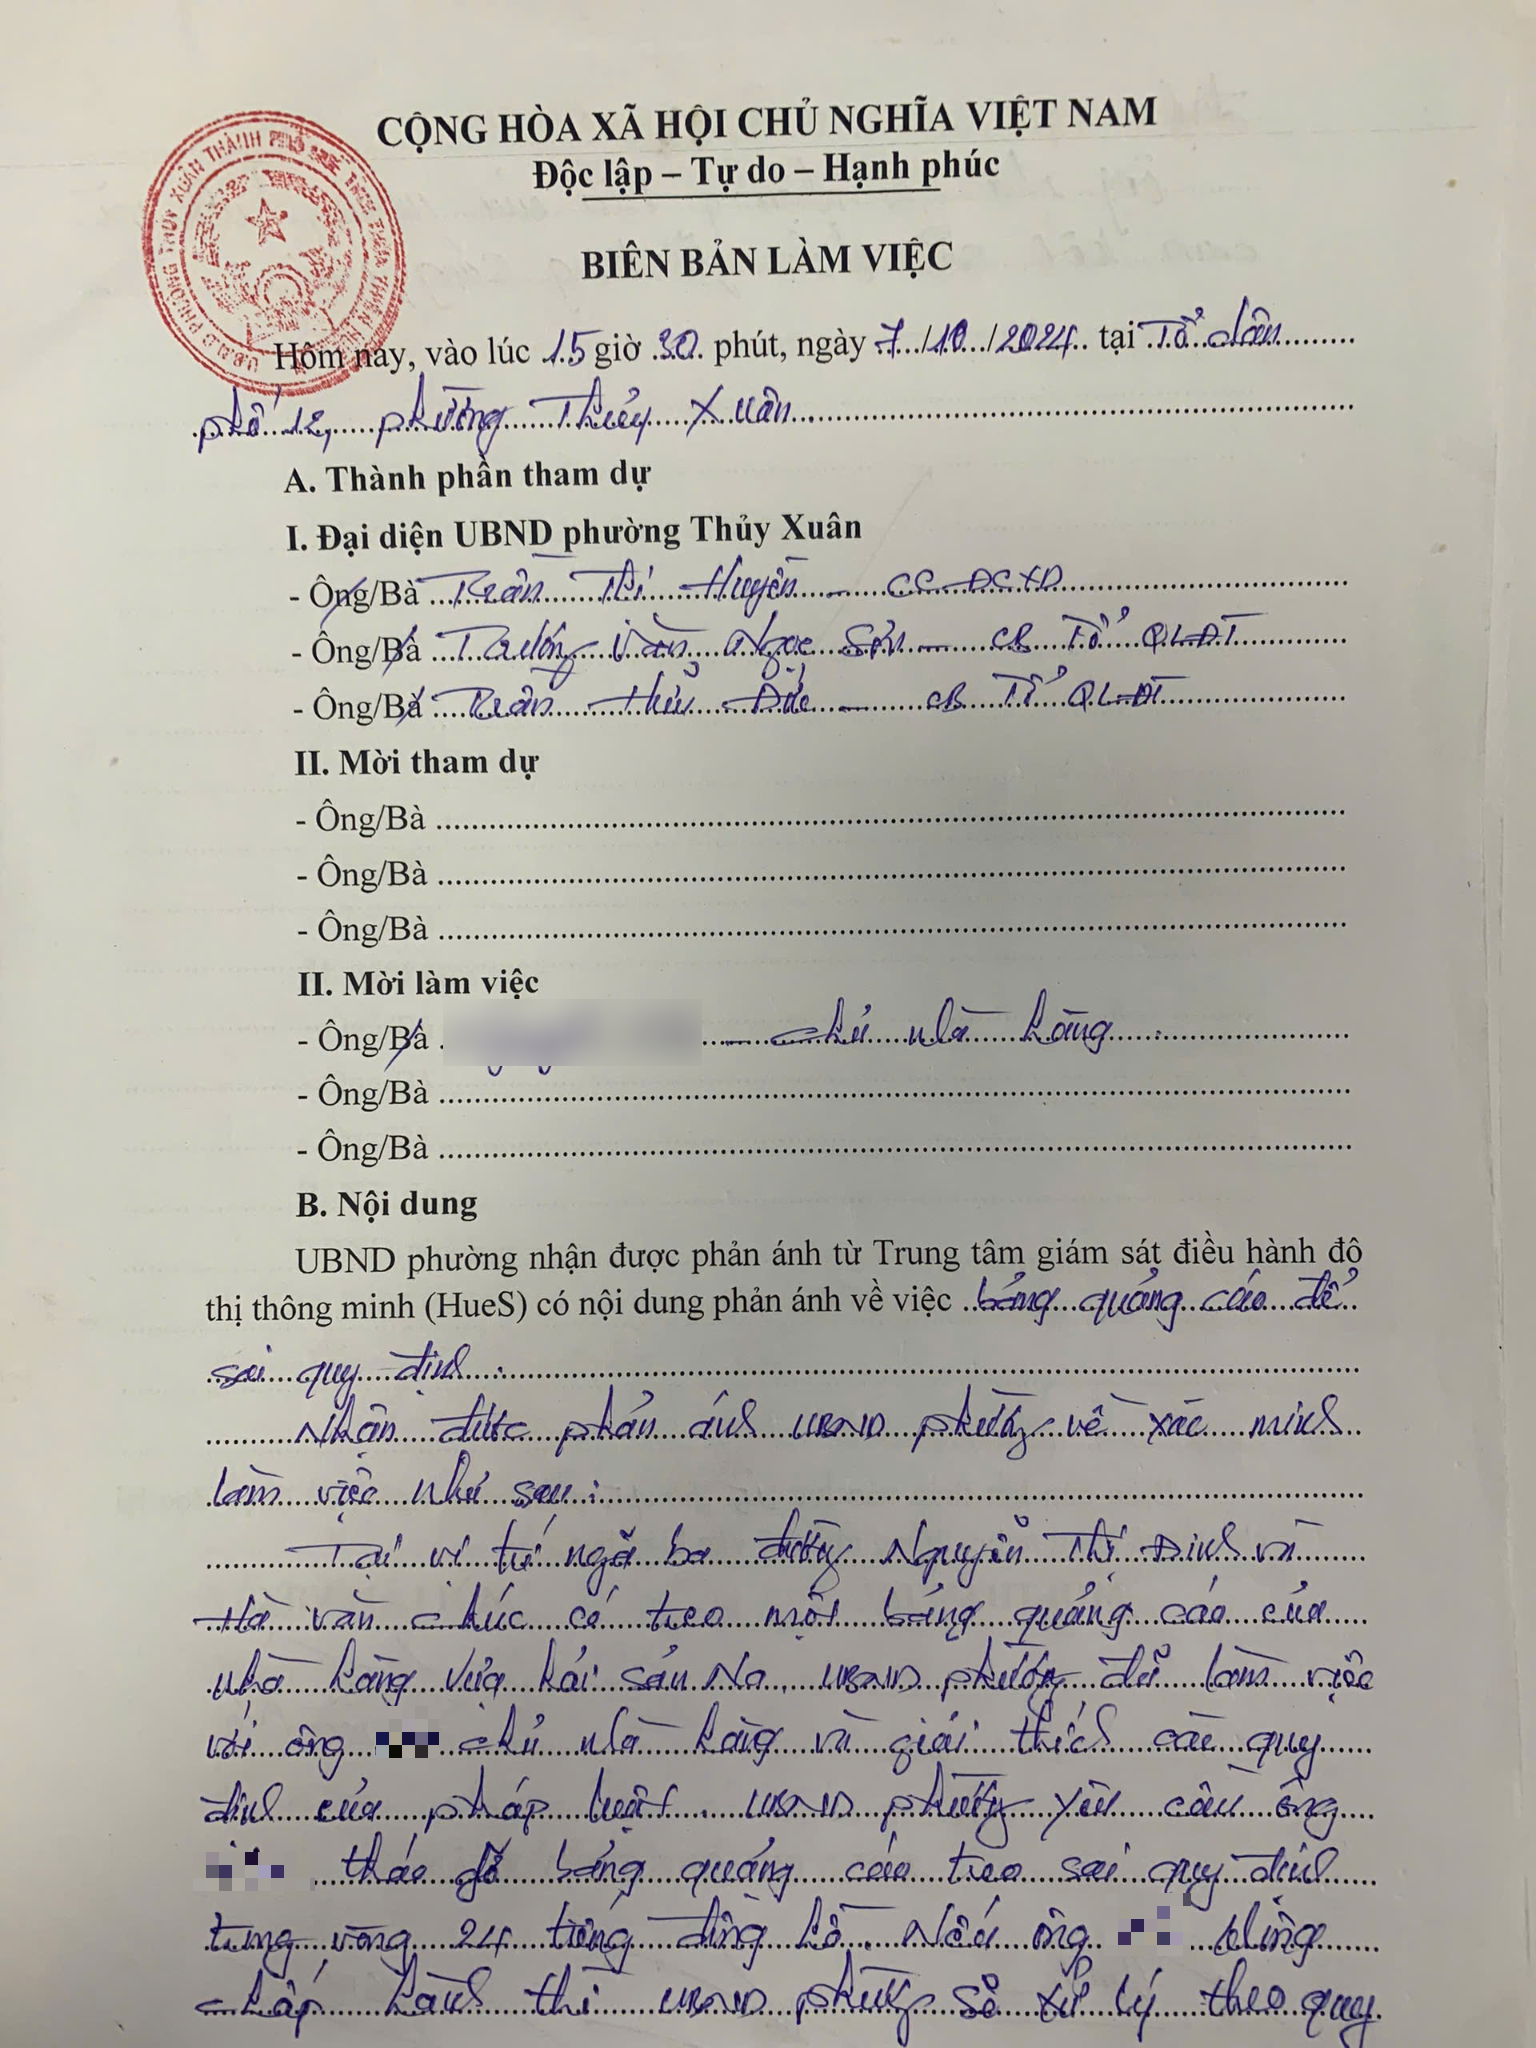 CỘNG HÒA XÃ HỘI CHỦ NGHĨA VIỆT NAM
Độc lập – Tự do – Hạnh phúc
BIÊN BẢN LÀM VIỆC
Hôm nay, vào lúc 15 giờ 30 phút, ngày 7/10/2024 tại Tổ dân
phố 12, phường Thủy Xuân
A. Thành phần tham dự
I. Đại diện UBND phường Thủy Xuân
- Ông/Bà Trần Thị Huyền – CC ĐCXD
- Ông/Bà Trương Văn Ngọc Sơn – CB Tổ QLĐT
- Ông/Bà Trần Hữu Đức – CB Tổ QLĐT
II. Mời tham dự
- Ông/Bà
- Ông/Bà
- Ông/Bà
II. Mời làm việc
- Ông/Bà – chủ nhà hàng
- Ông/Bà
- Ông/Bà
B. Nội dung
UBND phường nhận được phản ánh từ Trung tâm giám sát điều hành đô
thị thông minh (HueS) có nội dung phản ánh về việc bảng quảng cáo để
sai quy định.
Nhận được phản ánh UBND phường về xác minh
làm việc như sau:
Tại vị trí ngã ba đường Nguyễn Thị Định và
Hà Văn Chúc có treo một bảng quảng cáo của
nhà hàng vựa hải sản Na. UBND phường đã làm việc
với ông chủ nhà hàng và giải thích các quy
định của pháp luật. UBND phường yêu cầu ông
tháo dỡ bảng quảng cáo treo sai quy định
trong vòng 24 tiếng đồng hồ. Nếu ông không
chấp hành thì UBND phường sẽ xử lý theo quy